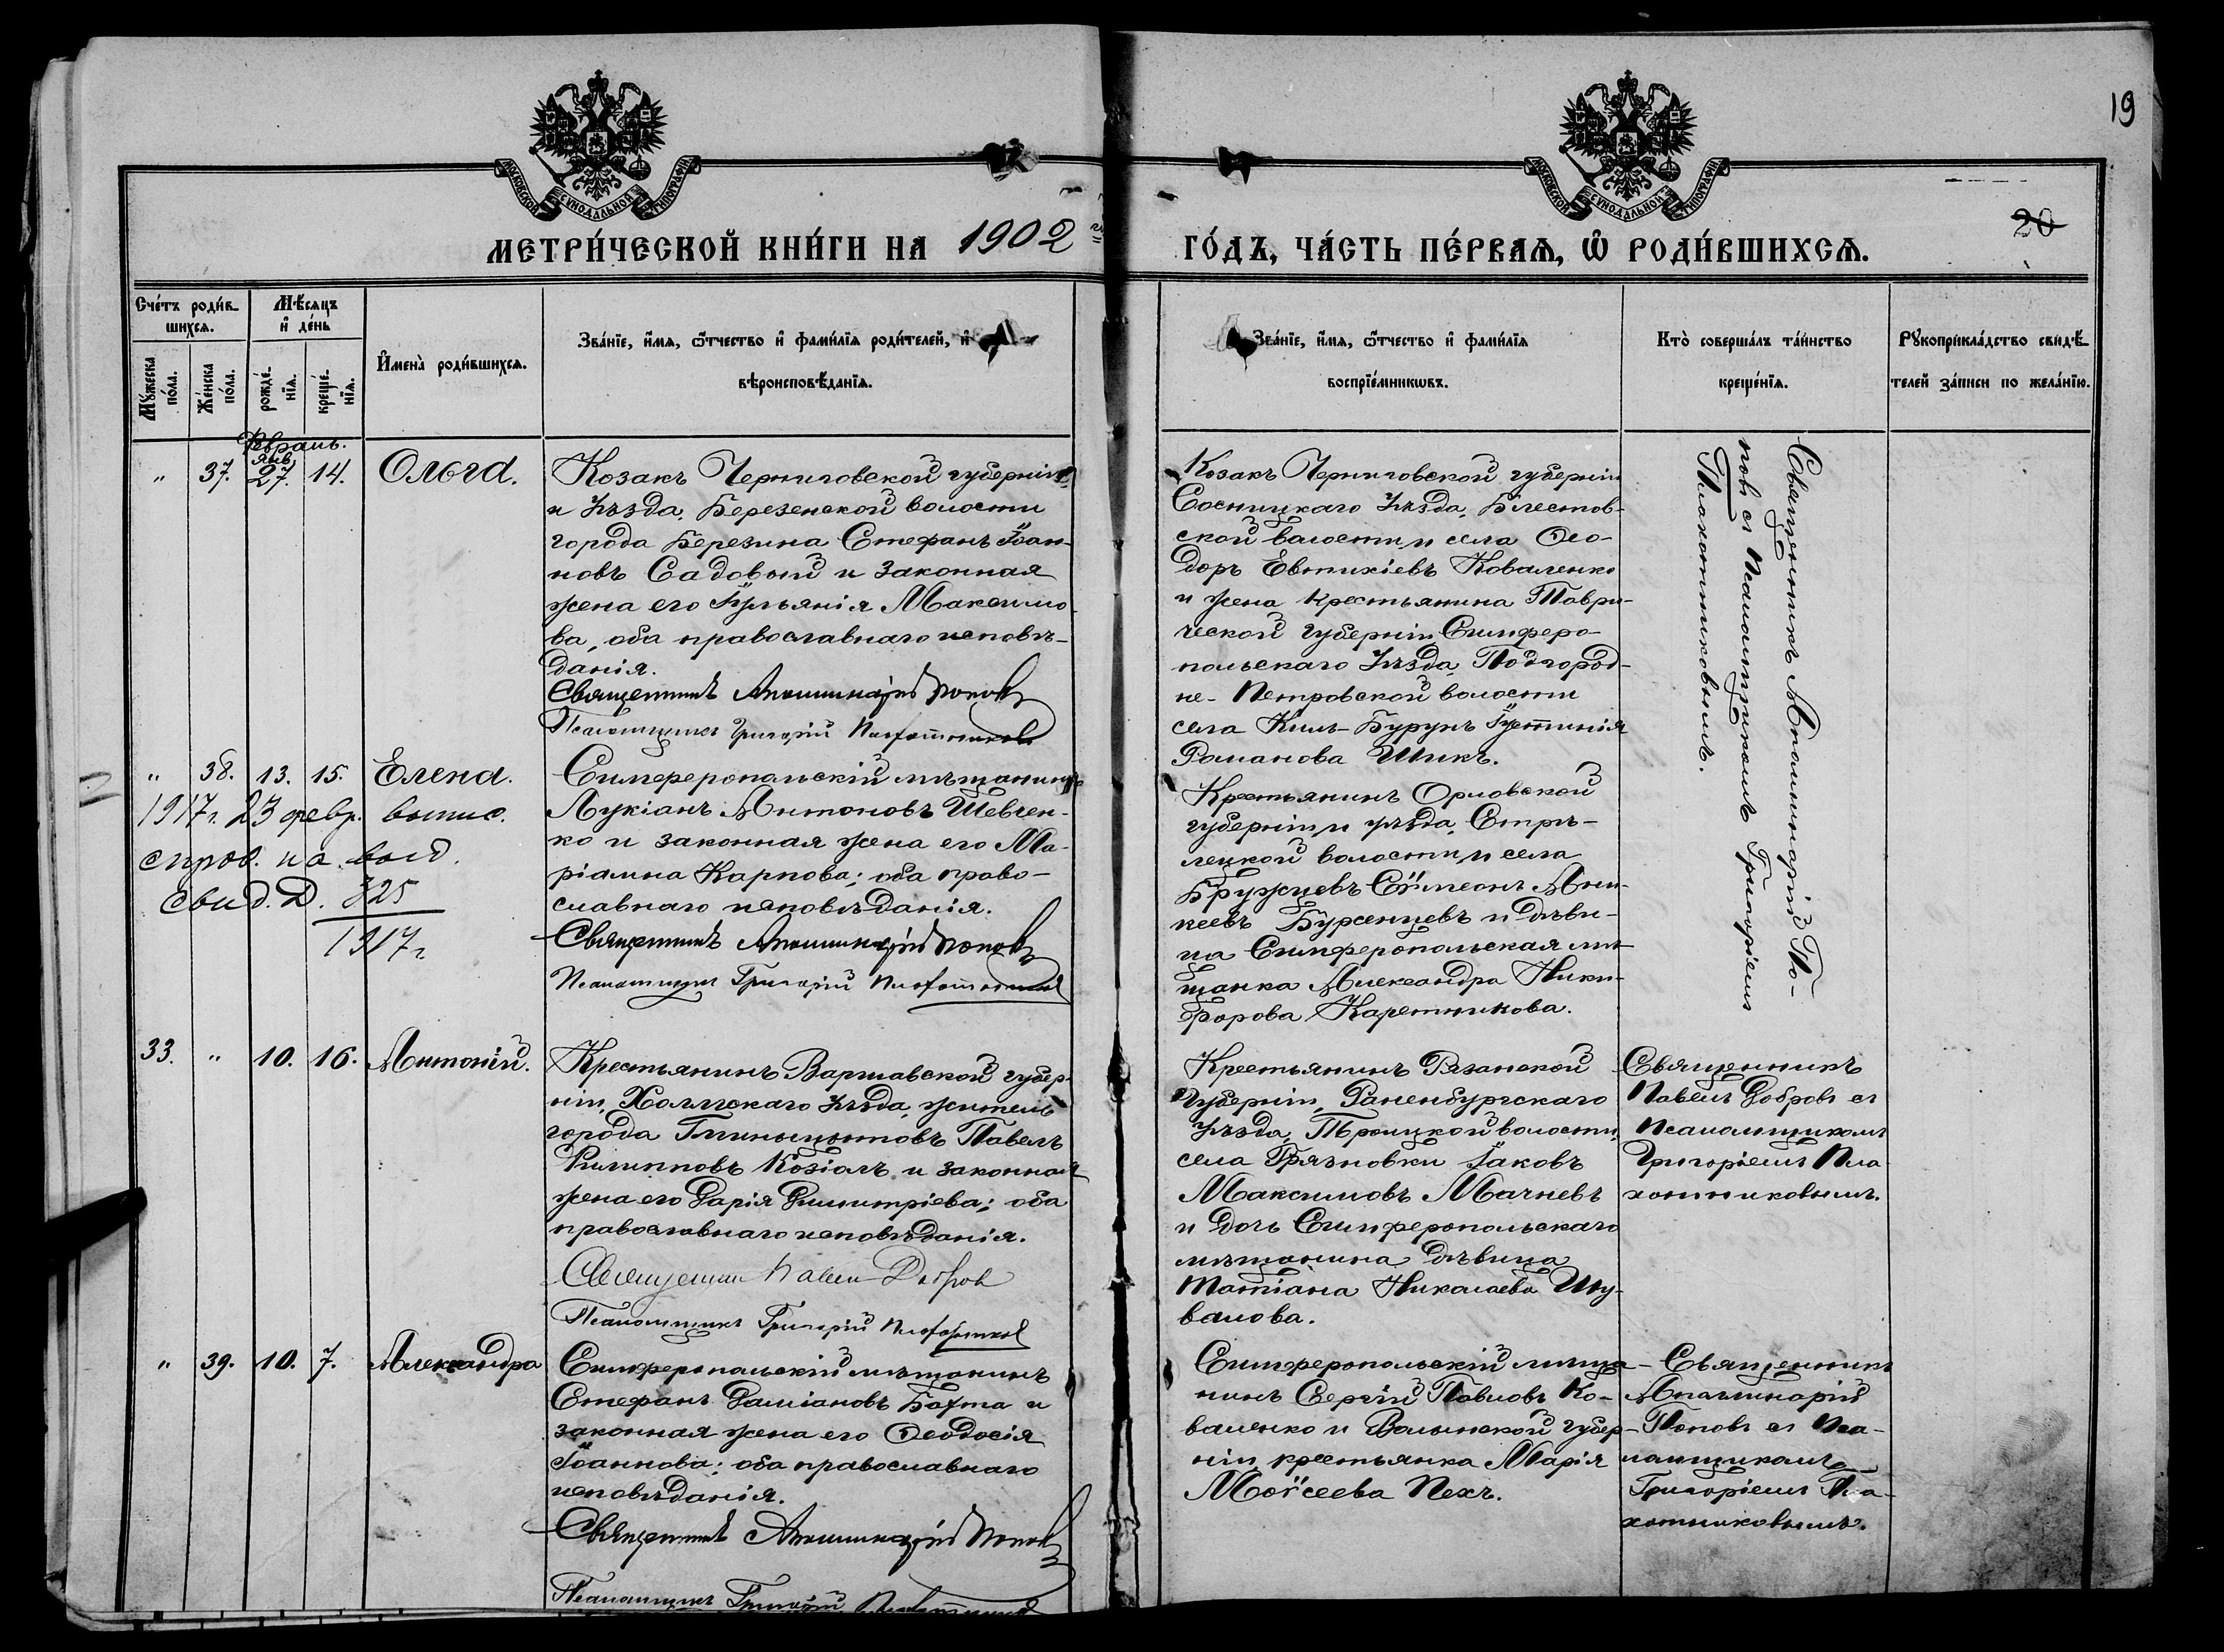 19
20
МОСКОВСКОЙ СУНОДАЛЬНОЙ ТИПОГРАФІИ
МОСКОВСКОЙ СУНОДАЛЬНОЙ ТИПОГРАФІИ
МЕТРИ́ЧЕСКОЙ КНИ́ГИ НА 1902 ГО́ДЪ, ЧА́СТЬ ПЕ́РВАѦ, Ѡ҆ РОДИ́ВШИХСѦ.
Сче́тъ роди́в-
шихсѧ.
Мꙋ́жеска по́ла.
Же́нска по́ла.
Мѣ́сѧцъ
и҆ де́нь
рожде́-
нїѧ.
креще́-
нїѧ.
И҆мена̀ роди́вшихсѧ.
Зва́нїе, и҆́мѧ, ѻ҆́тчество и҆ фами́лїѧ роди́телей, и҆
вѣроисповѣ́данїѧ.
Зва́нїе, и҆́мѧ, ѻ҆́тчество и҆ фами́лїѧ
воспрїе́мникѡвъ.
Кто̀ соверша́лъ та́инство
креще́нїѧ.
Рꙋкоприкла́дство свидѣ́-
телей за́писи по жела́нїю.
Февраль.
янв.
" 37. 27. 14. Ольга.
Козакъ Черниговской губерніи
и уѣзда, Березенской волости
города Березина Стефанъ Іоан-
новъ Садовый и законная
жена его Іульянія Максимо-
ва, оба православнаго исповѣ-
данія.
Священникъ Аполлинарій Попов
Псаломщикъ Григорій Плахотников
Козакъ Черниговской губерніи
Сосницкаго уѣзда,
ской волости и села Ѳео-
доръ Евтихіевъ Коваленко
и жена крестьянина Таври-
ческой губерніи Симферо-
польскаго уѣзда, Подгород-
не-Петровской волости
села Киль-Бурунъ Іустинія
Романова Шикъ.
Священникъ Аполлинарій По-
повъ съ псаломщикомъ Григоріемъ
Плахотниковымъ.
" 38. 13. 15. Елена.
1917 г. 23 февр. выпис.
справ. на выд.
свид. 325
1917 г.
Симферопольскій мѣщанинъ
Лукіанъ Антоновъ Шевчен-
ко и законная жена его Ма-
ріамна Карпова; оба право-
славнаго исповѣданія.
Священникъ Аполлинарій Попов
Псаломщикъ Григорій Плахотников
Крестьянинъ Орловской
губерніи и уѣзда, Стрѣ-
лецкой волости, и села
Сѵмеонъ Ани-
кеевъ Бурженцевъ и дѣви-
ца Симферопольская мѣ-
щанка Александра Ники-
форова Каретникова.
33. " 10. 16. Антоній.
Крестьянинъ Варшавской губер-
ніи, Холмскаго уѣзда, житель
города Павелъ
Филипповъ Козіолъ и законная
жена его Дарія Димитріева; оба
православнаго исповѣданія.
Священник Павел Добров
Псаломщикъ Григорій Плахотников
Крестьянинъ Рязанской
губерніи, Раненбургскаго
уѣзда, Троицкой волости,
села Грязновки Іаковъ
Максимовъ Мачневъ
и дочь Симферопольскаго
мѣщанина дѣвица
Татіана Николаева Шу-
валова.
Священникъ
Павелъ Добровъ съ
псаломщикомъ
Григоріемъ Пла-
хотниковымъ.
" 39. 10. 7. Александра
Симферопольскій мѣщанинъ
Стефанъ Даміановъ Бахта и
законная жена его Ѳеодосія
Іоаннова; оба православнаго
исповѣданія.
Священникъ Аполлинарій Попов
Псаломщикъ Григорій Плахотников
Симферопольскій мѣща-
нинъ Сергій Павловъ Ко-
валенко и Волынской губер-
ніи, крестьянка Марія
Моѵсеева Пехъ.
Священникъ
Аполлинарій
Поповъ съ пса-
ломщикомъ
Григоріемъ Пла-
хотниковымъ.